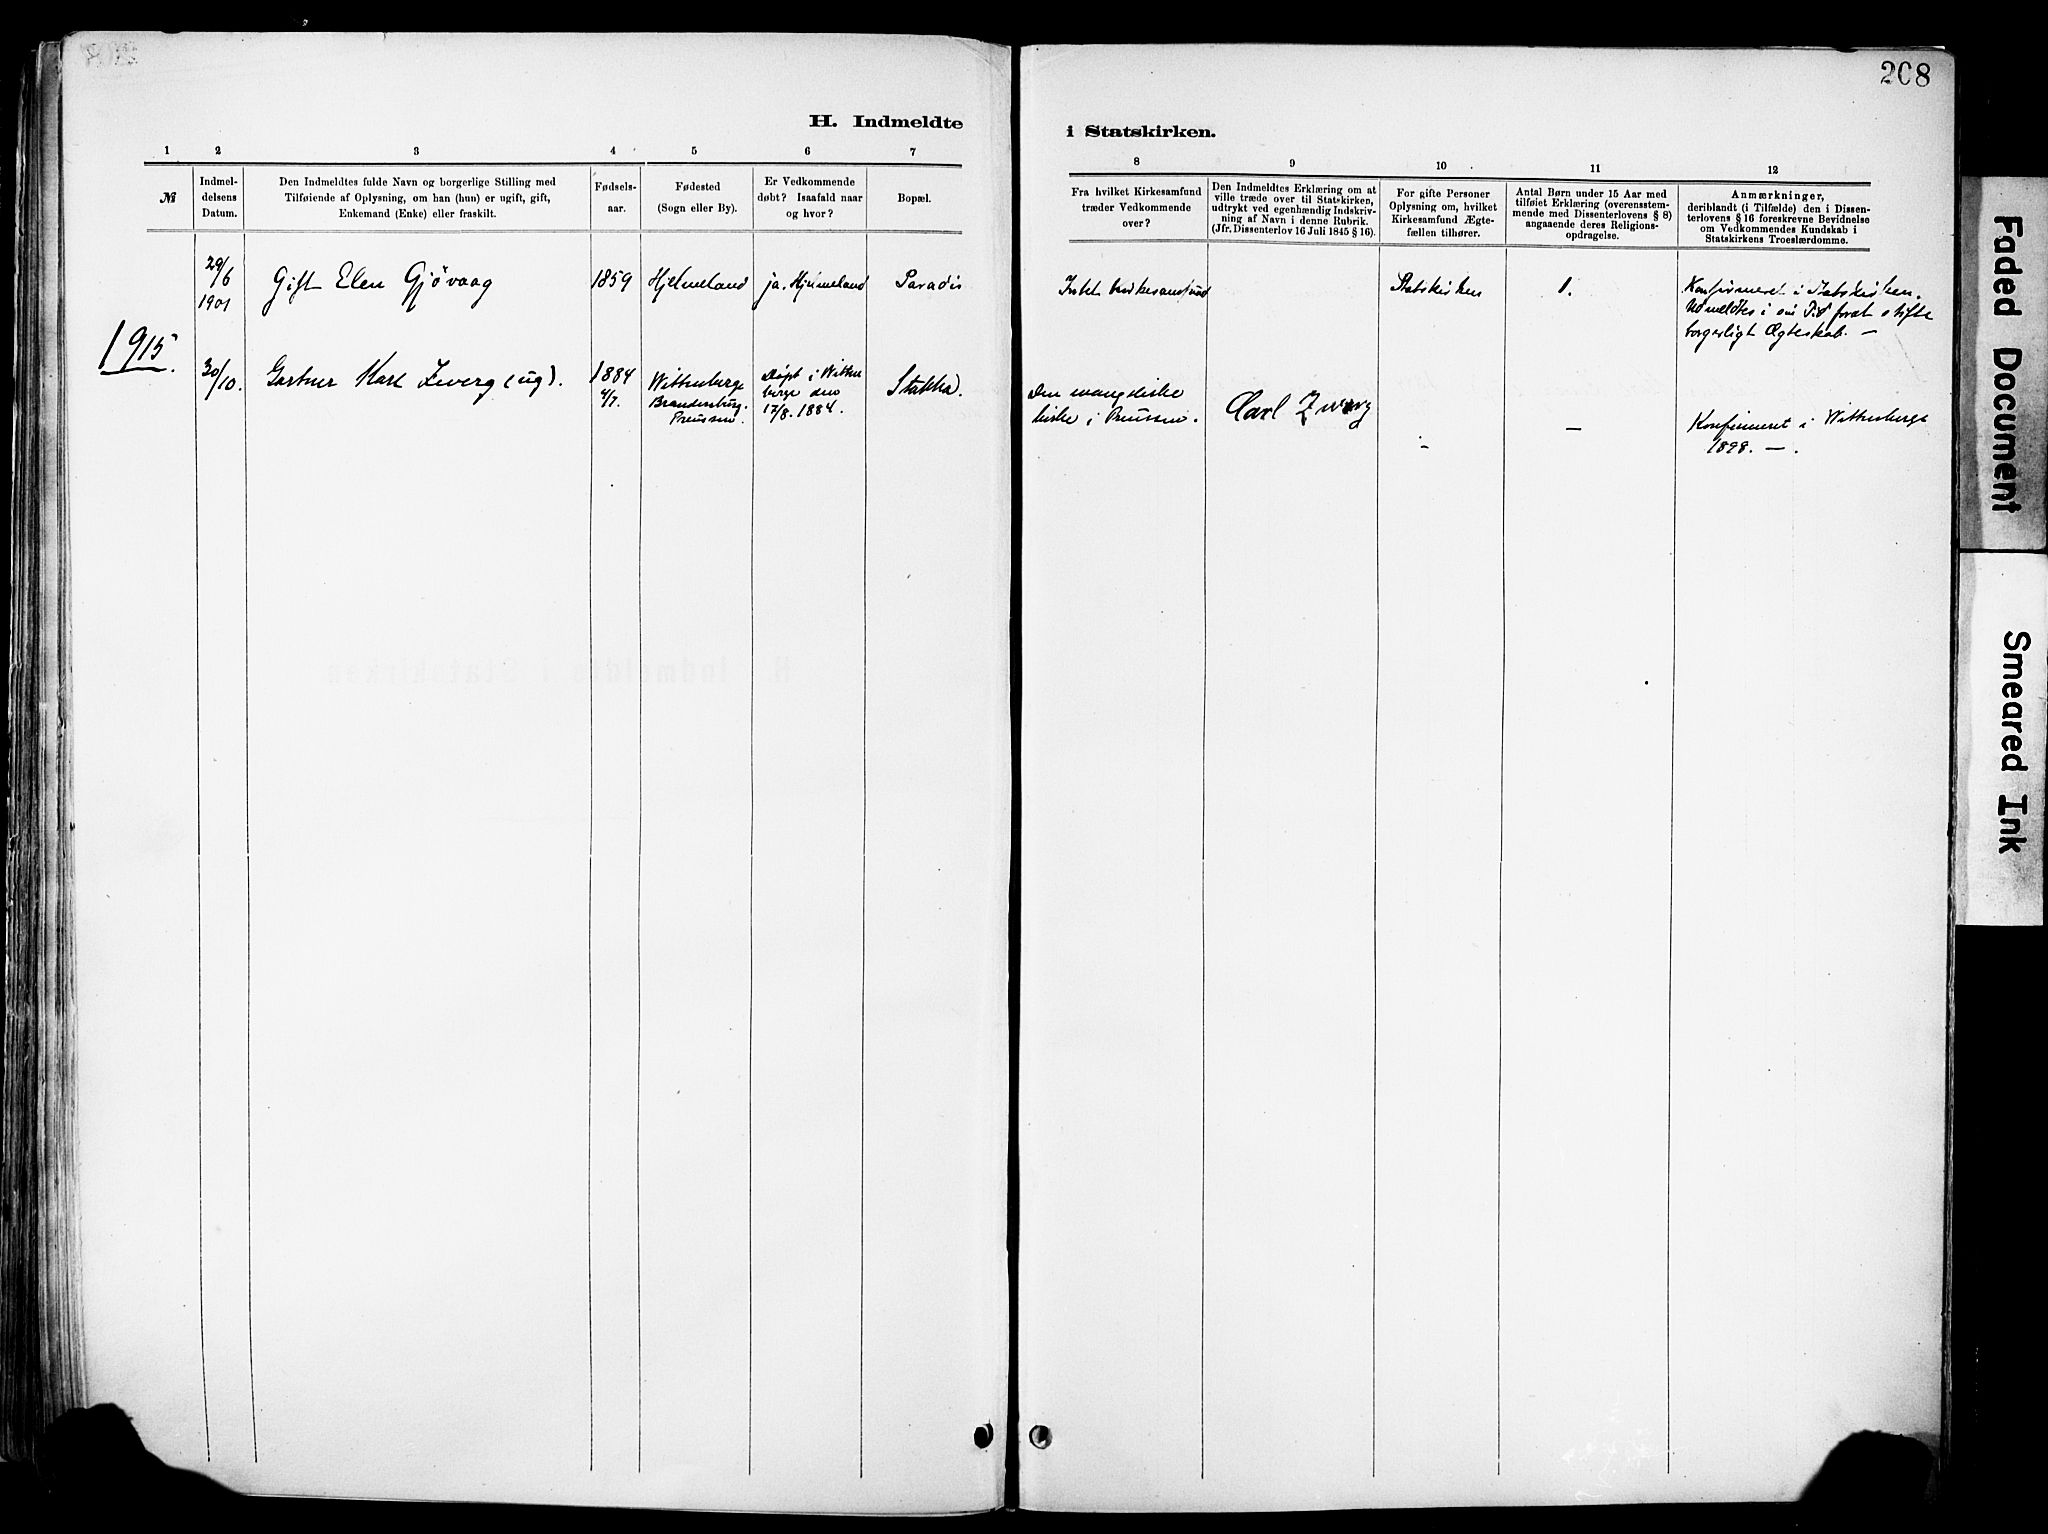 208
H. Indmeldte
i Statskirken.
1 2 3 4 5 6 7
8 9 10 11 12
№
Indmel-
delsens
Datum.
Den Indmeldtes fulde Navn og borgerlige Stilling med
Tilføiende af Oplysning, om han (hun) er ugift, gift,
Enkemand (Enke) eller fraskilt.
Fødsels-
aar.
Fødested
(Sogn eller By).
Er Vedkommende
døbt? Isaafald naar
og hvor?
Bopæl.
Fra hvilket Kirkesamfund
træder Vedkommende
over?
Den Indmeldtes Erklæring om at
ville træde over til Statskirken,
udtrykt ved egenhændig Indskriv-
ning af Navn i denne Rubrik.
(Jfr. Dissenterlov 16 Juli 1845 § 16).
For gifte Personer
Oplysning om, hvilket
Kirkesamfund Ægte-
fællen tilhører.
Antal Børn under 15 Aar med
tilføiet Erklæring (overensstem-
mende med Dissenterlovens § 8)
angaaende deres Religions-
opdragelse.
Anmærkninger,
deriblandt (i Tilfælde) den i Dissen-
terlovens § 16 foreskrevne Bevidnelse
om Vedkommendes Kundskab i
Statskirkens Troeslærdomme.
29/6
1901
Gift Elen Gjövaag
1859
Hjelmeland
ja. Hjelmeland
Paradis
Intet kirkesamfund
Statskirken
1.
Konfirmeret i Statskirken.
Udmeldtes i sin Tid forat stifte
borgerligt Ægteskab. —
1915.
30/10.
Gartner Karl Zwerg (ug).
1884
4/7.
Wittenberge
Brandenburg.
Preussen.
Døpt i Witten
berge den
17/8. 1884.
Stokka.
Den evangeliske
kirke i Preussen.
Carl Zwerg
-
—
Konfirmeret i Wittenberge
1898. — .
Faded Document
Smeared Ink